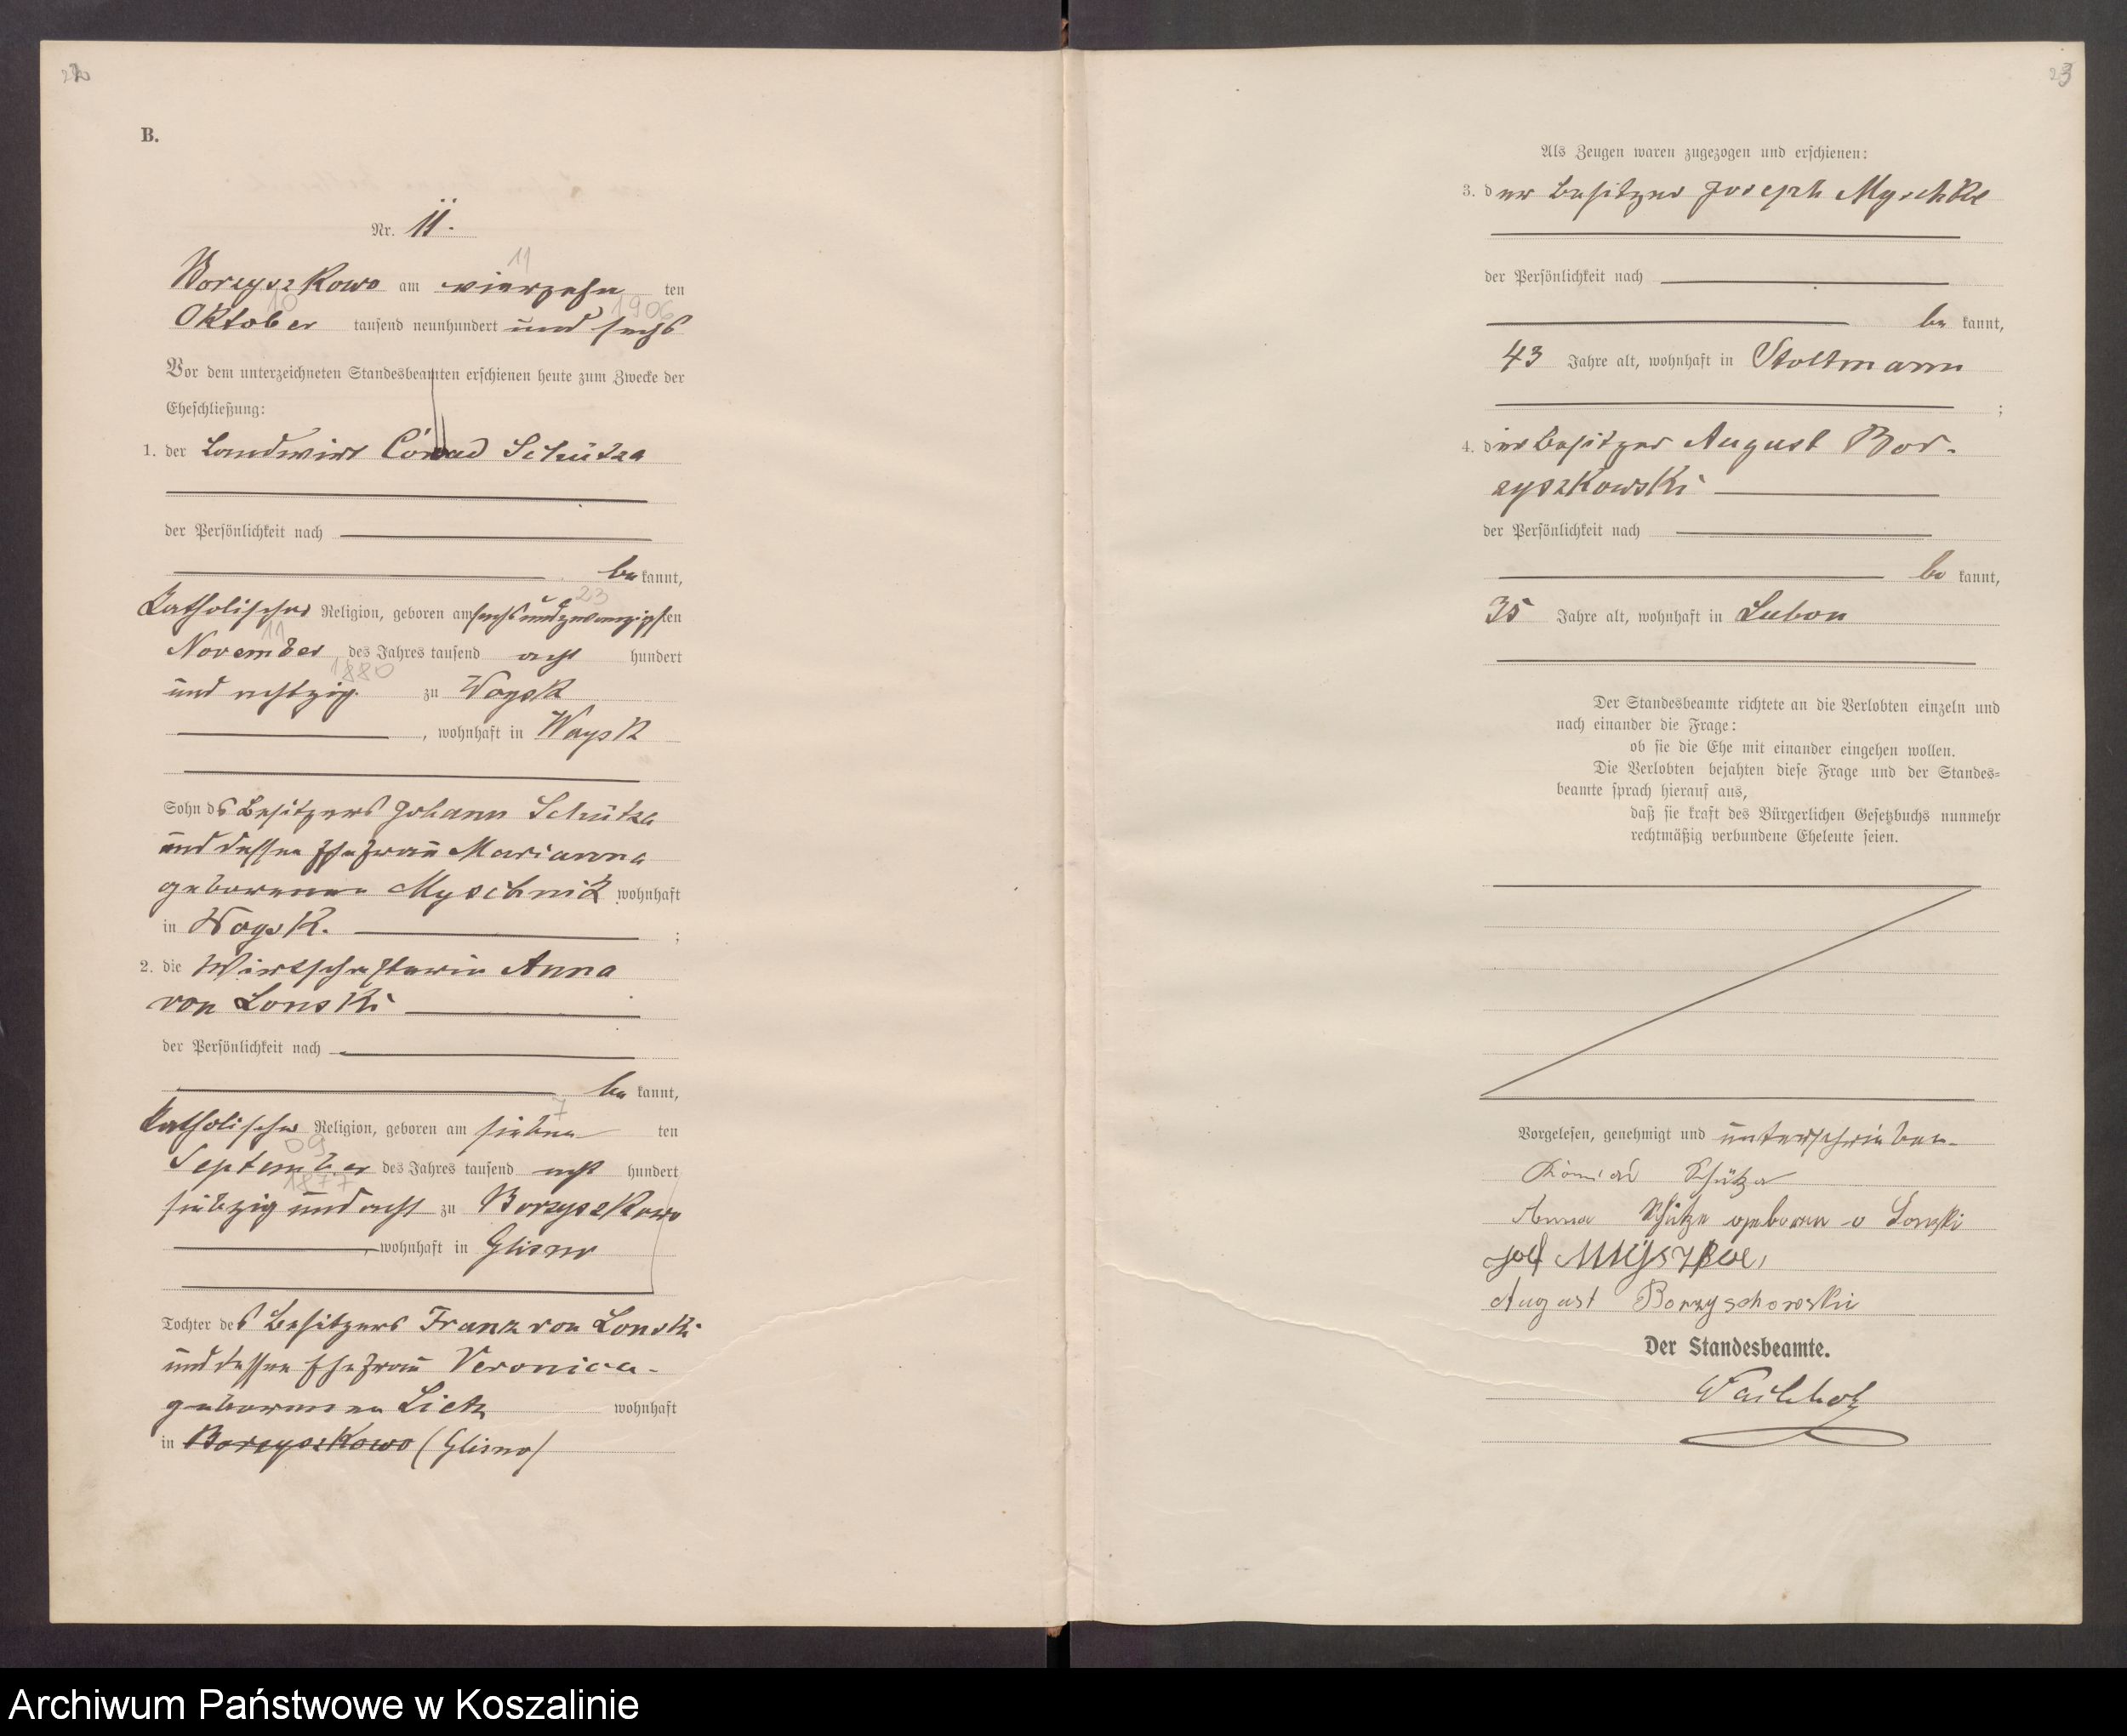 22
B.
Nr. 11.
11
Borzyszkowo am vierzehn ten
10 1906
Oktober tausend neunhundert und sechs
Vor dem unterzeichneten Standesbeamten erschienen heute zum Zwecke der
Eheschließung:
1. der Landwirt Conrad Schütza
der Persönlichkeit nach
be kannt,
23
katholischer Religion, geboren am sechsundzwanzigsten
11
November des Jahres tausend acht hundert
1880
und achtzig zu Woysk
, wohnhaft in Woysk
Sohn des Besitzers Johann Schütza
und dessen Ehefrau Marianna
geborenen Myschnik wohnhaft
in Woysk. ;
2. die Wirtschafterin Anna
von Lonski
der Persönlichkeit nach
be kannt,
7
katholischer Religion, geboren am sieben ten
09
September des Jahres tausend acht hundert
1877
siebzig und acht zu Borzyszkowo
, wohnhaft in Glisno
Tochter des Besitzers Franz von Lonski
und dessen Ehefrau Veronica
geborenen Lietz wohnhaft
in Borzyszkowo (Glisno)
23
Als Zeugen waren zugezogen und erschienen:
3. der Besitzer Joseph Myschke
der Persönlichkeit nach
be kannt,
43 Jahre alt, wohnhaft in Stoltmann
;
4. der Besitzer August Bor-
zyszkowski
der Persönlichkeit nach
be kannt,
35 Jahre alt, wohnhaft in Lubon
Der Standesbeamte richtete an die Verlobten einzeln und
nach einander die Frage:
ob sie die Ehe mit einander eingehen wollen.
Die Verlobten bejahten diese Frage und der Standes=
beamte sprach hierauf aus,
daß sie kraft des Bürgerlichen Gesetzbuchs nunmehr
rechtmäßig verbundene Eheleute seien.
Vorgelesen, genehmigt und unterschrieben.
Schütza
Anna Schütza geboren v Lonski
August Borzyschowski
Der Standesbeamte.
Archiwum Państwowe w Koszalinie